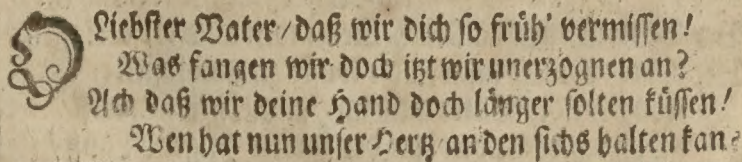 O Liebster Vater/daß wir dich so früh' vermissen!
Was fangen wir doch itzt wir unerzognen an?
Ach daß wir deine Hand doch länger solten küssen!
Wen hat nun unser Hertz an den sichs halten kan?